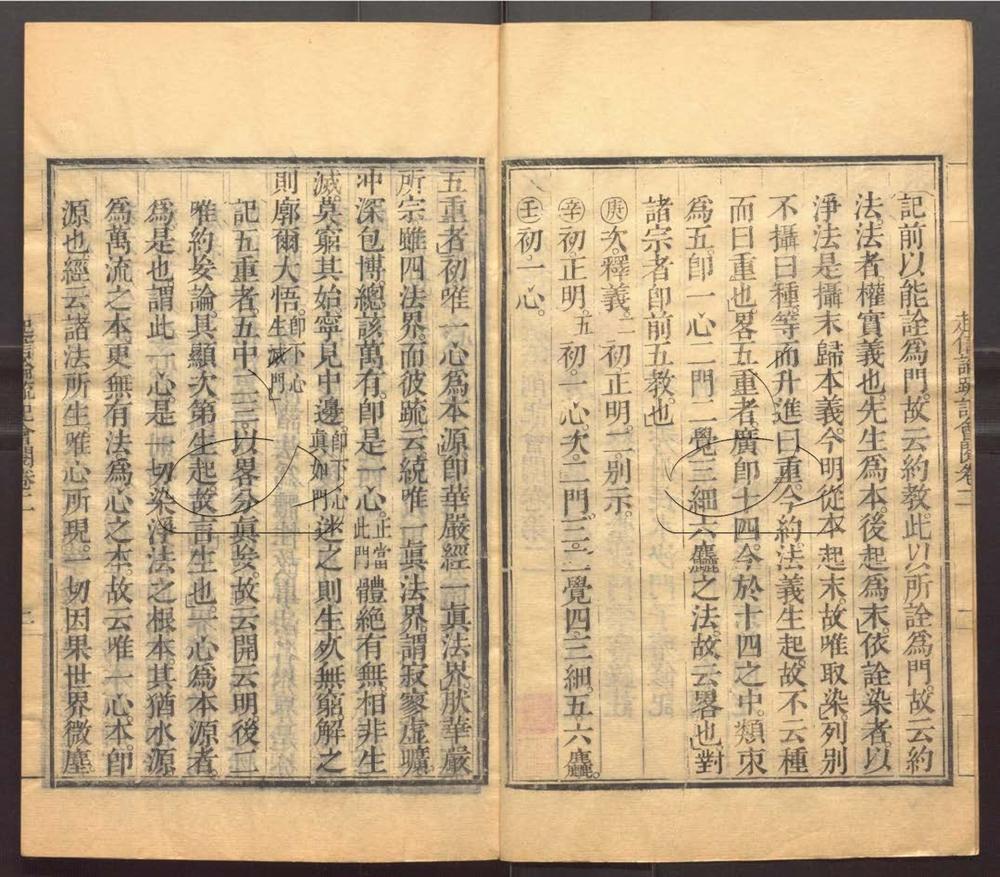 記前以能詮爲門。故云約教。此以所詮爲門。故云約
法法者。權實義也。先生爲本。後起爲末。依詮染者。以
淨法是攝末歸本義。今明從本起末。故唯取染。列別
不攝曰種。等而升進曰重。今約法義生起。故不云種
而曰重也。畧五重者。廣卽十四。今於十四之中。類束
爲五。卽一心二門二覺三細六麤之法。故云畧也。對
諸宗者。卽前五教也。
庚次釋義。二初正明。二別示。
辛初正明。五初。一心。次。二門。三。二覺四。三細。五六麤。
壬初一心。
五重者。初唯一心爲本源。卽華嚴經一眞法界。狀華嚴
所宗。雖四法界。而彼疏云。統唯一眞法界。謂寂寥虛曠
冲深包博。總該萬有。卽是一心。正當此門體絕有無。相非生
滅。莫窮其始。寧見中邊。卽下心眞如門迷之則生死無窮。解之
則廓爾大悟。卽下心生滅門
記五重者。五中一二三。以畧分眞妄。故云開云明。後二
唯約妄論。其顯次第生起。故言生也。一心爲本源者。
爲是也。謂此一心。是一切染淨法之根本。其猶水源
爲萬流之本。更無有法爲心之本。故云唯一心。本。卽
源也。經云。諸法所生。唯心所現。一切因果世界微塵
起信論疏記會閱卷二